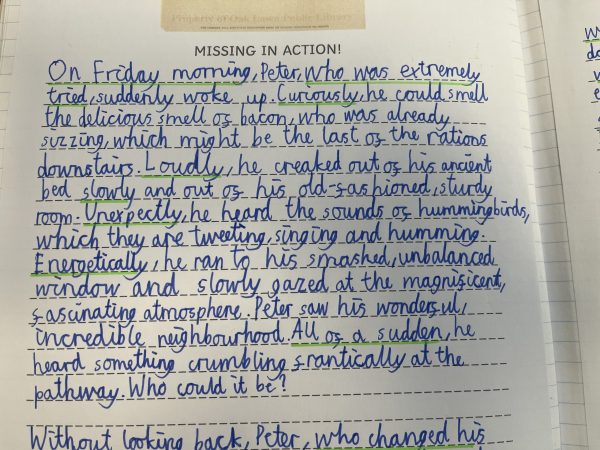 Property of Oak Public Library
MISSING IN ACTION!
On Friday morning, Peter, who was extremely
tried, suddenly woke up. Curiously, he could smell
the delicious smell of bacon, who was already
sizzing, which might be the last of the rations
downstairs. Loudly, he creaked out of his ancient
bed slowly and out of his old-fashioned, sturdy
room. Unexpectly, he heard the sounds of hummingbirds,
which they are tweeting, singing and humming.
Energetically, he ran to his smashed, unbalanced
window and slowly gazed at the magnificent,
fascinating atmosphere. Peter saw his wonderful,
incredible neighbourhood. All of a sudden, he
heard something crumbling frantically at the
pathway. Who could it be?
Without looking back, Peter, who changed his